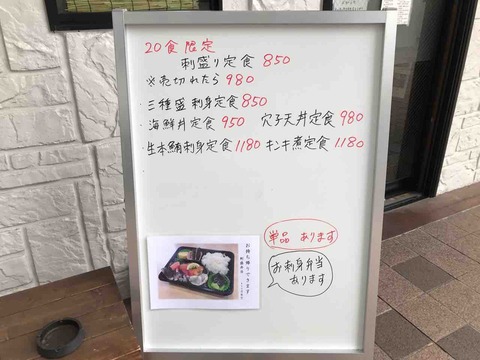 20食限定
刺盛り定食 850
※売切れたら 980
・三種盛 刺身定食 850
・海鮮丼定食 950 穴子天丼定食 980
・生本鮪刺身定食 1180 キンキ煮定食 1180
単品 あります
お刺身弁当
あります
お持ち帰りできます
刺盛弁当